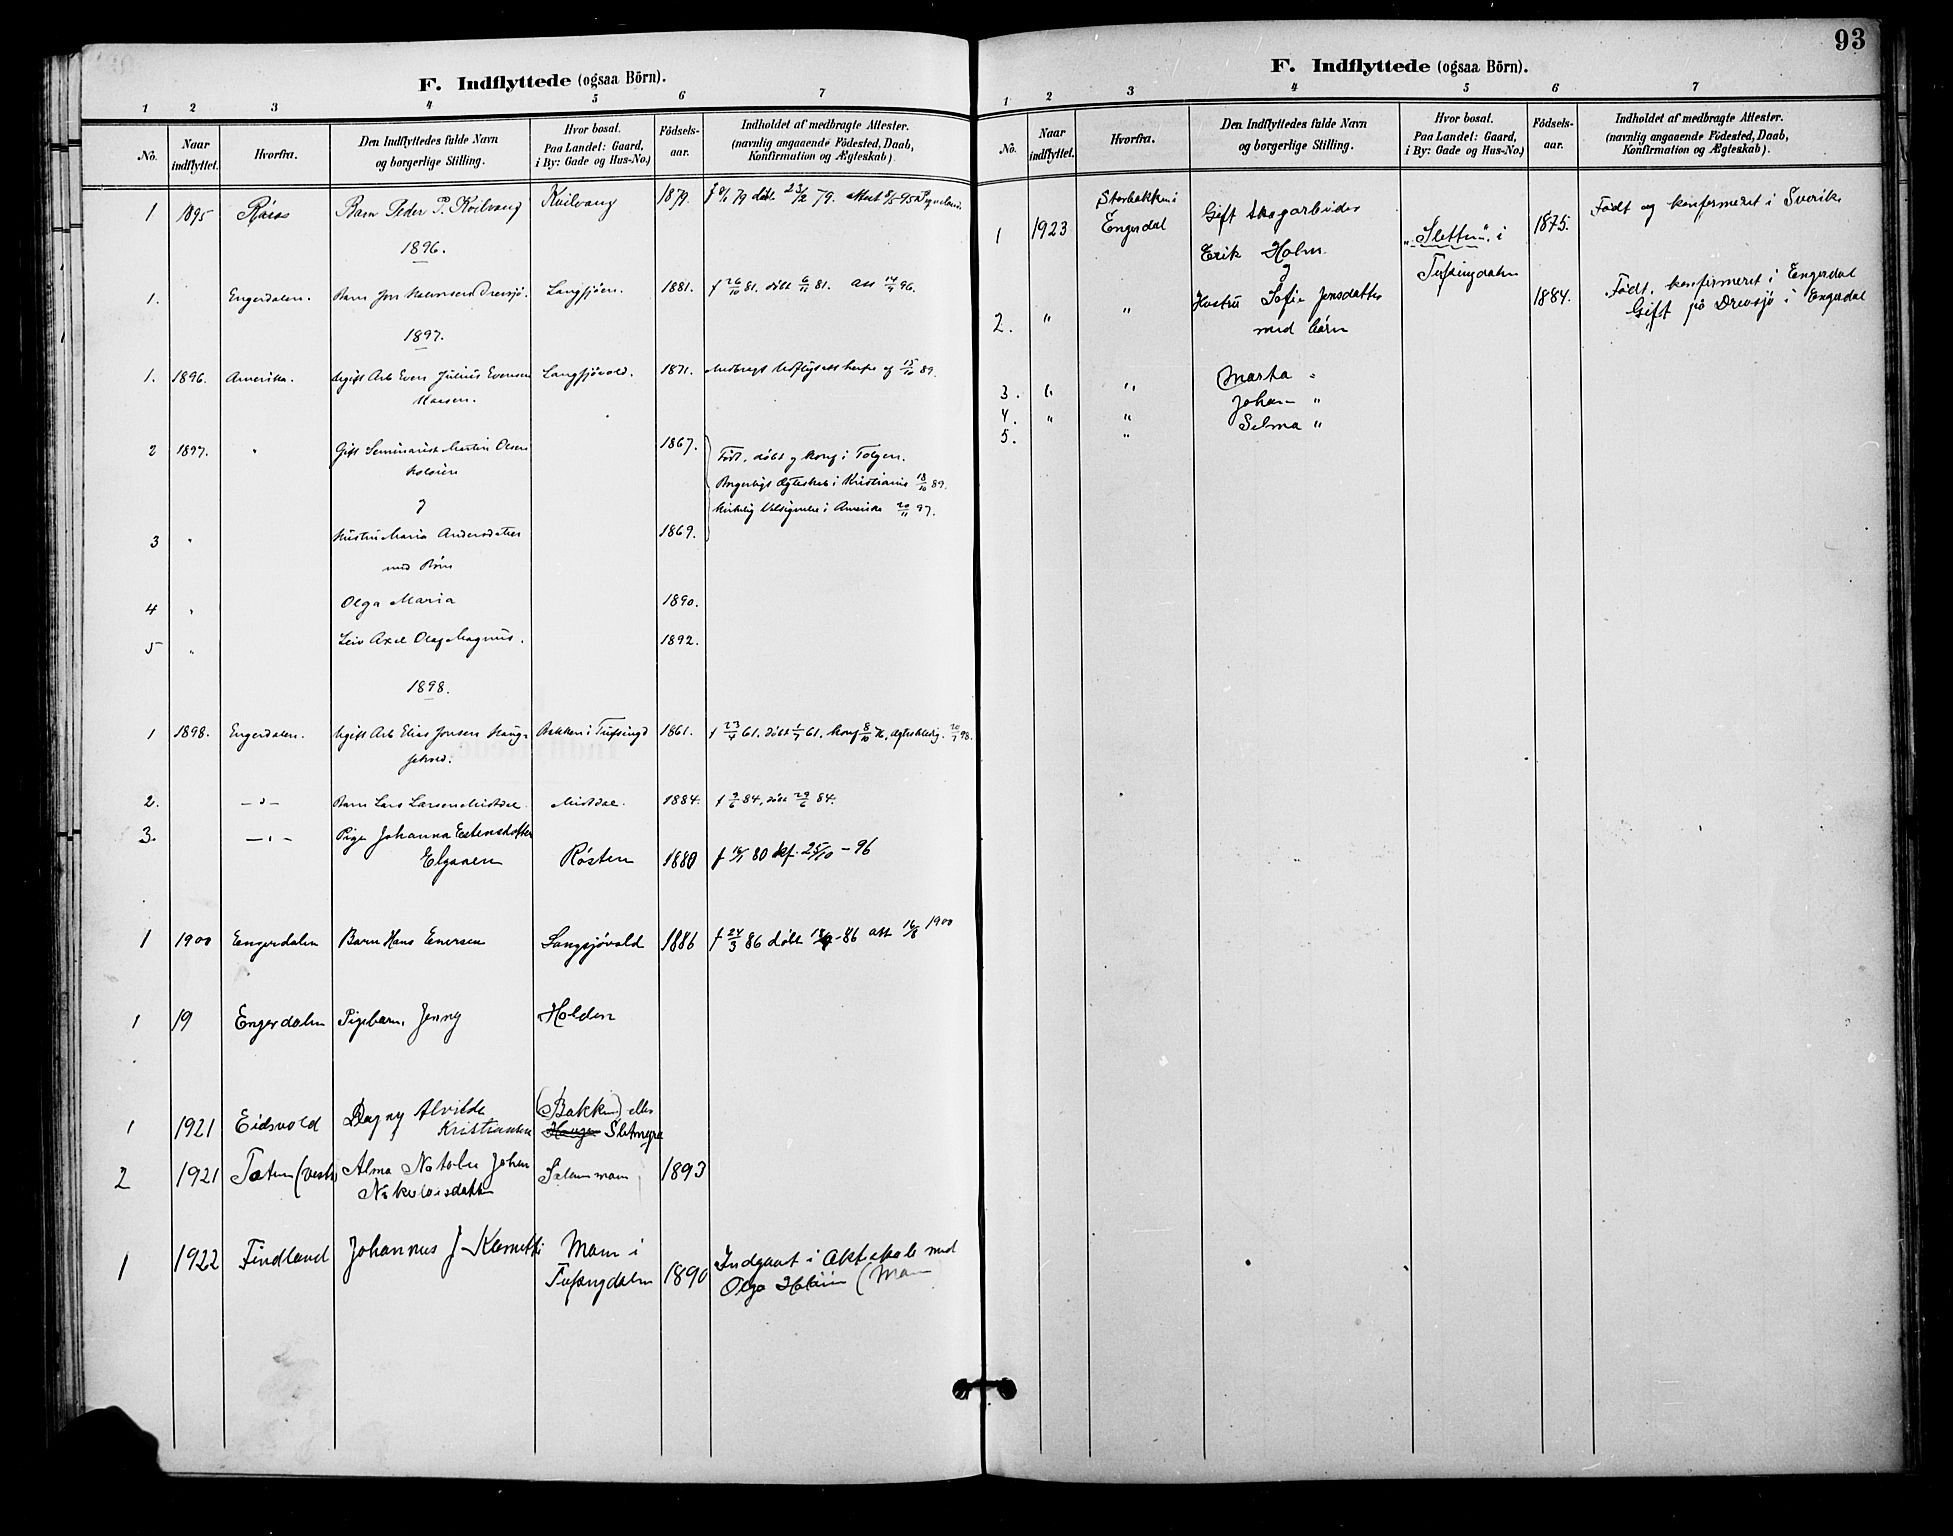 F. Indflyttede (ogsaa Börn).
1 2 3 4 5 6 7
No.
Naar indflyttet.
Hvorfra.
Den Indflyttedes fulde Navn og borgerlige Stilling.
Hvor bosat. Paa Landet: Gaard, i By: Gade og Hus-No.)
Fødsels-aar.
Indholdet af medbragte Attester. (navnlig angaaende Födested, Daab, Konfirmation og Ægteskab).
1 1895 Røros Barn Peder P. Kvilvang Kvilvang 1879.
1896.
1. Engerdalen. Barn Jon Drevsjø. Langsjøen. 1881. f 26/10 81. døbt 6/11 81. att 14/4 96.
1897.
1. 1896. Amerika. Ugift Arb Even Julius Evensen Langsjøvold. 1871. Medbragt af 15/10 89.
2 1897. " Gift Seminarist Martin Olsen 1867. Født, døbt og konf i Tolgen.
Holøien Borgerligt Ægteskab i Kristiania 18/10 89.
og Kirkelig Velsignelse i Amerika 20/11 97.
3 " Hustru Maria Andersdatter 1869.
med Børn
4 " Olga Maria 1890.
5 " Leiv Axel Olaf Magnus. 1892.
1898.
1 1898. Engerdalen. Ugift Arb Elias Jonsen Bakken i Tufsingd 1861. f 23/4 61. døbt 1/7 61. konf 8/10 76.
2. —"— Barn Lars Larsen Mistdal. Mistdal. 1884. f 9/6 84, døbt 29/6 84.
3. —"— Pige Johanna Estensdatter
Elgaaen Røsten 1880 f 16/1 80 kf. 25/10 – 96
1 1900 Engerdalen Barn Hans Enersen Langsjövold 1886 f 24/3 86 døbt 86 att 16/8 1900
1 19 Engerdalen Pigebarn, Jenny Holden
1 1921 Eidsvold Dagny Alvilde (Bakken) eller
Kristiansen Haugen Sletmyra
2 1921 Toten (vestre) Alma Natalie Johan 1893
Nikolaisdatter
1 1922 Findland Johannes J. Mam i Indgaat i Akteskab med
Tufsingdalen 1890 Olga Holøien (Mam
93
F. Indflyttede (ogsaa Börn).
1 2 3 4 5 6 7
No.
Naar indflyttet.
Hvorfra.
Den Indflyttedes fulde Navn og borgerlige Stilling.
Hvor bosat. Paa Landet: Gaard, i By: Gade og Hus-No.)
Fødsels-aar.
Indholdet af medbragte Attester. (navnlig angaaende Födested, Daab, Konfirmation og Ægteskab).
1 1923 Storbakken i Engerdal Gift skogarbeider "Sletten" i 1875. Født og konfirmeret i Sverike
Erik Holm Tufsingdalen
og
2. " " Hustru Sofie Jensdatter 1884. Født, konfirmeret i Engerdal
med børn Gift på Drevsjø i Engerdal
3. " " Marta "
4. " " Johan "
5. " Selma "